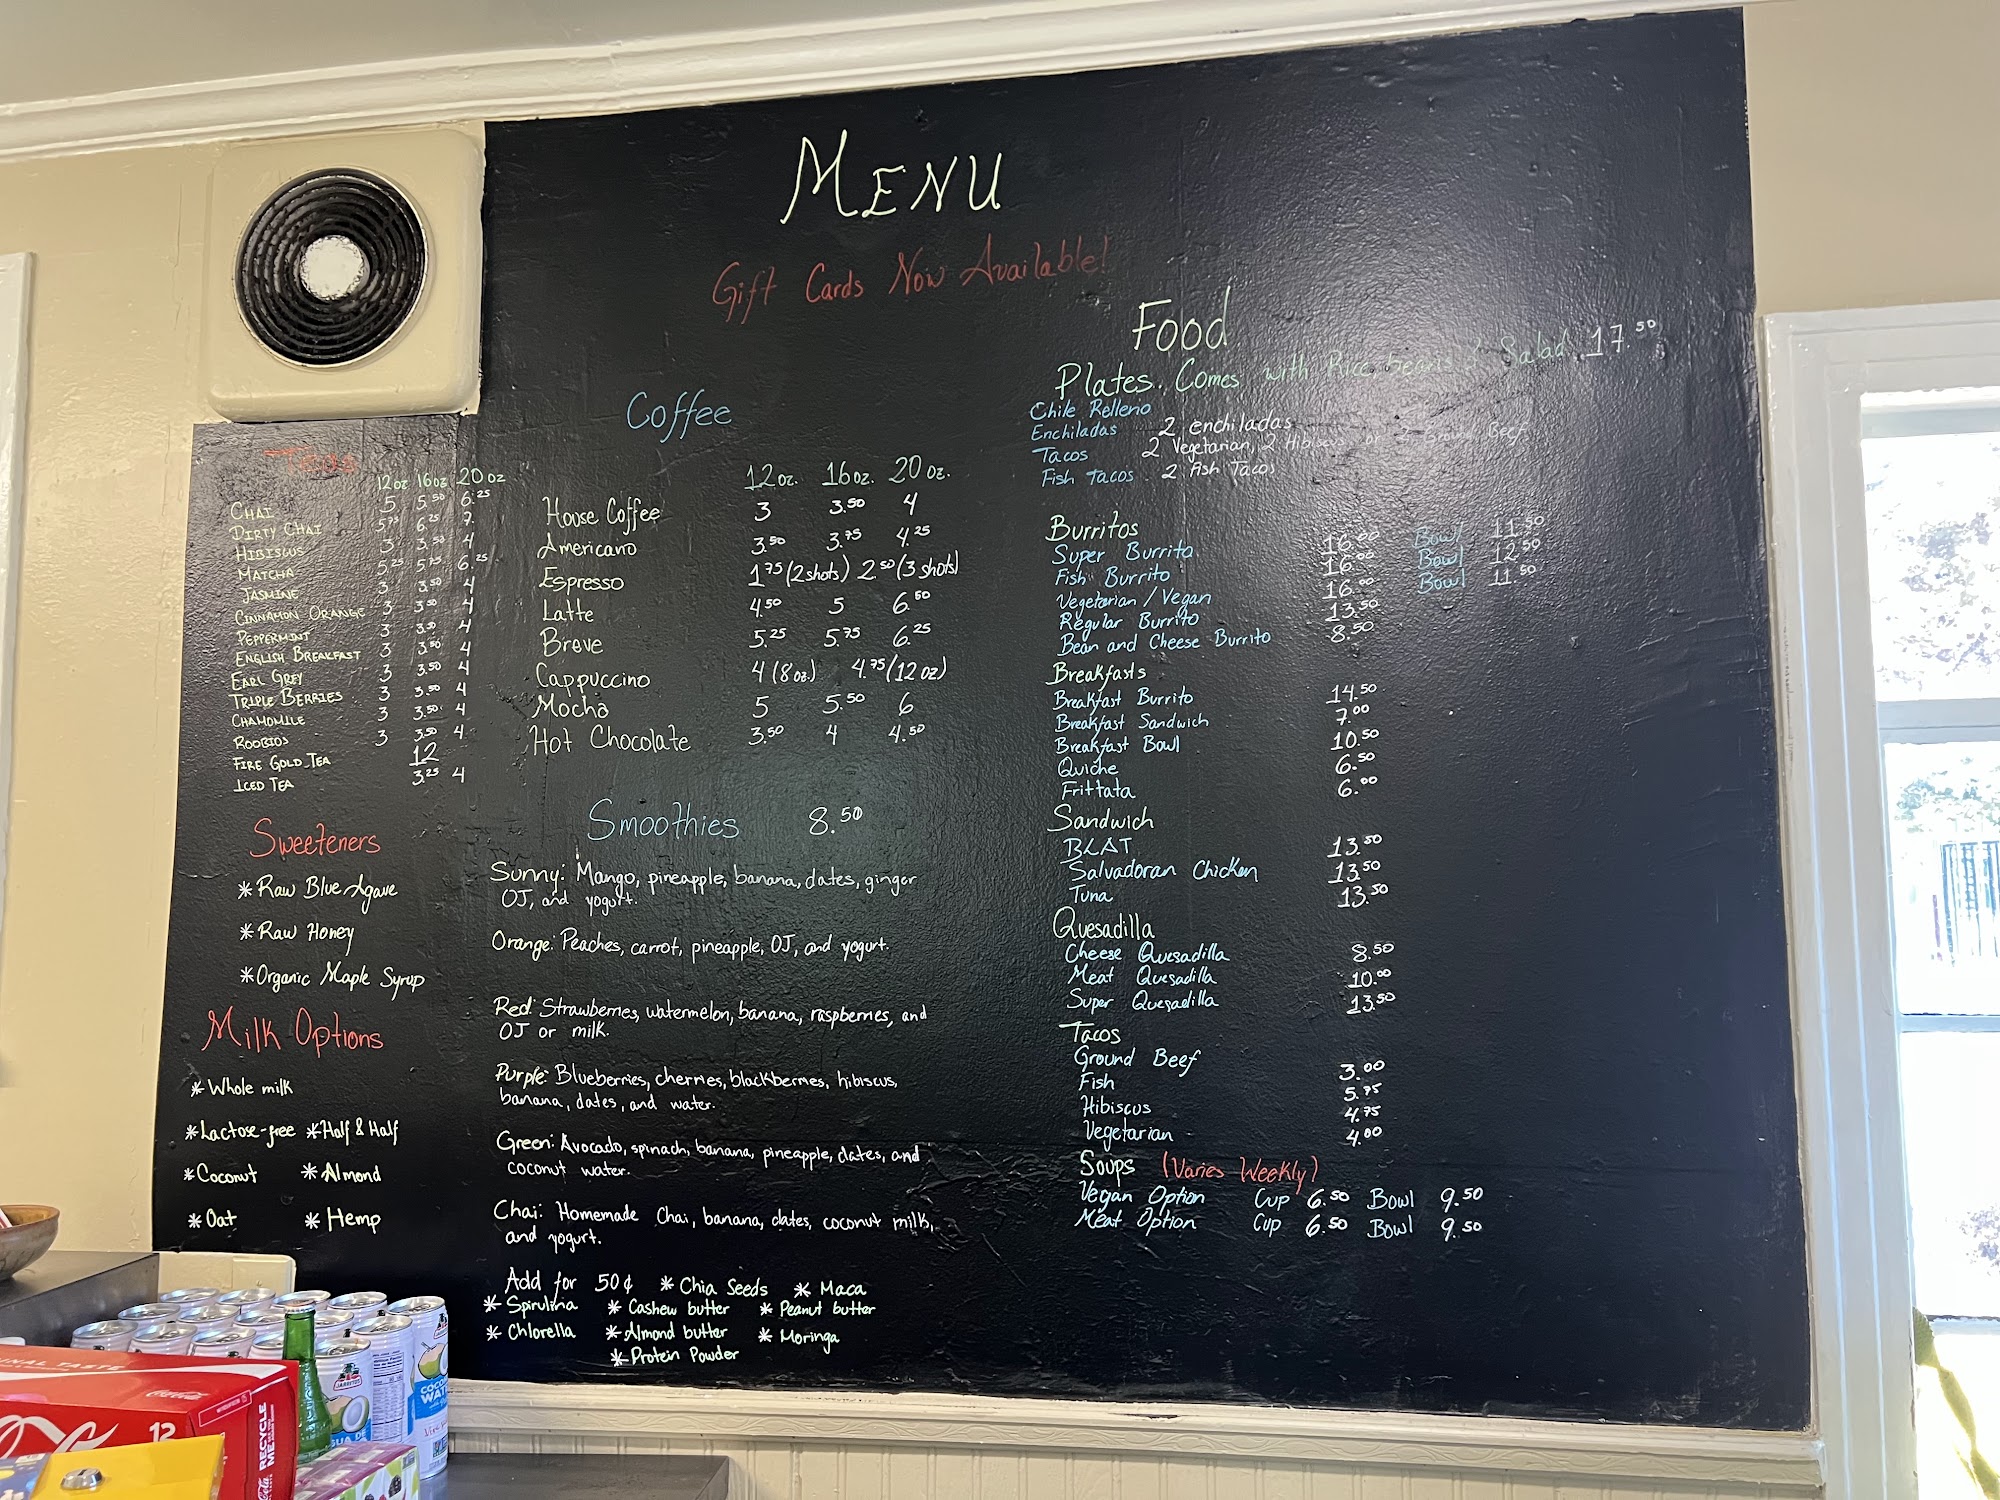 MENU
Gift Cards Now Available!
Teas
12oz 16oz 20oz
CHAI 5 5.50 6.25
DIRTY CHAI 5.75 6.25 7.
HIBISCUS 3 3.50 4
MATCHA 5.25 5.75 6.25
JASMINE 3 3.50 4
CINNAMON ORANGE 3 3.50 4
PEPPERMINT 3 3.50 4
ENGLISH BREAKFAST 3 3.50 4
EARL GREY 3 3.50 4
TRIPLE BERRIES 3 3.50 4
CHAMOMILE 3 3.50 4
ROOBIOS 3 3.50 4
FIRE GOLD TEA 12
ICED TEA 3.25 4
Sweeteners
*Raw Blue Agave
*Raw Honey
*Organic Maple Syrup
Milk Options
*Whole milk
*Lactose-free *Half & Half
*Coconut *Almond
*Oat *Hemp
Coffee
12oz. 16oz. 20oz.
House Coffee 3 3.50 4
Americano 3.50 3.75 4.25
Espresso 1.75 (2 shots) 2.50 (3 shots)
Latte 4.50 5 6.50
Breve 5.25 5.75 6.25
Cappuccino 4 (8oz.) 4.75 (12oz)
Mocha 5 5.50 6
Hot Chocolate 3.50 4 4.50
Smoothies 8.50
Sunny: Mango, pineapple, banana, dates, ginger
OJ, and yogurt.
Orange: Peaches, carrot, pineapple, OJ, and yogurt.
Red: Strawberries, watermelon, banana, raspberries, and
OJ or milk.
Purple: Blueberries, cherries, blackberries, hibiscus,
banana, dates, and water.
Green: Avocado, spinach, banana, pineapple, dates, and
coconut water.
Chai: Homemade Chai, banana, dates, coconut milk,
and yogurt.
Add for 50¢ *Chia Seeds *Maca
*Spirulina *Cashew butter *Peanut butter
*Chlorella *Almond butter *Moringa
*Protein Powder
Food
Plates Comes with Rice, beans & Salad 17.50
Chile Relleno
Enchiladas 2 enchiladas
Tacos 2 Vegetarian, 2 Hibiscus or Ground Beef
Fish Tacos 2 Fish Tacos
Burritos
Super Burrito 16.00 Bowl 11.50
Fish Burrito 16.00 Bowl 12.50
Vegetarian / Vegan 16.00 Bowl 11.50
Regular Burrito 13.50
Bean and Cheese Burrito 8.50
Breakfasts
Breakfast Burrito 14.50
Breakfast Sandwich 7.00
Breakfast Bowl 10.50
Quiche 6.50
Frittata 6.00
Sandwich
BLAT 13.50
Salvadoran Chicken 13.50
Tuna 13.50
Quesadilla
Cheese Quesadilla 8.50
Meat Quesadilla 10.00
Super Quesadilla 13.50
Tacos
Ground Beef 3.00
Fish 5.75
Hibiscus 4.75
Vegetarian 4.00
Soups (Varies Weekly)
Vegan Option Cup 6.50 Bowl 9.50
Meat Option Cup 6.50 Bowl 9.50
JARRITOS
COCO
WAT
RECYCLE
ME
12